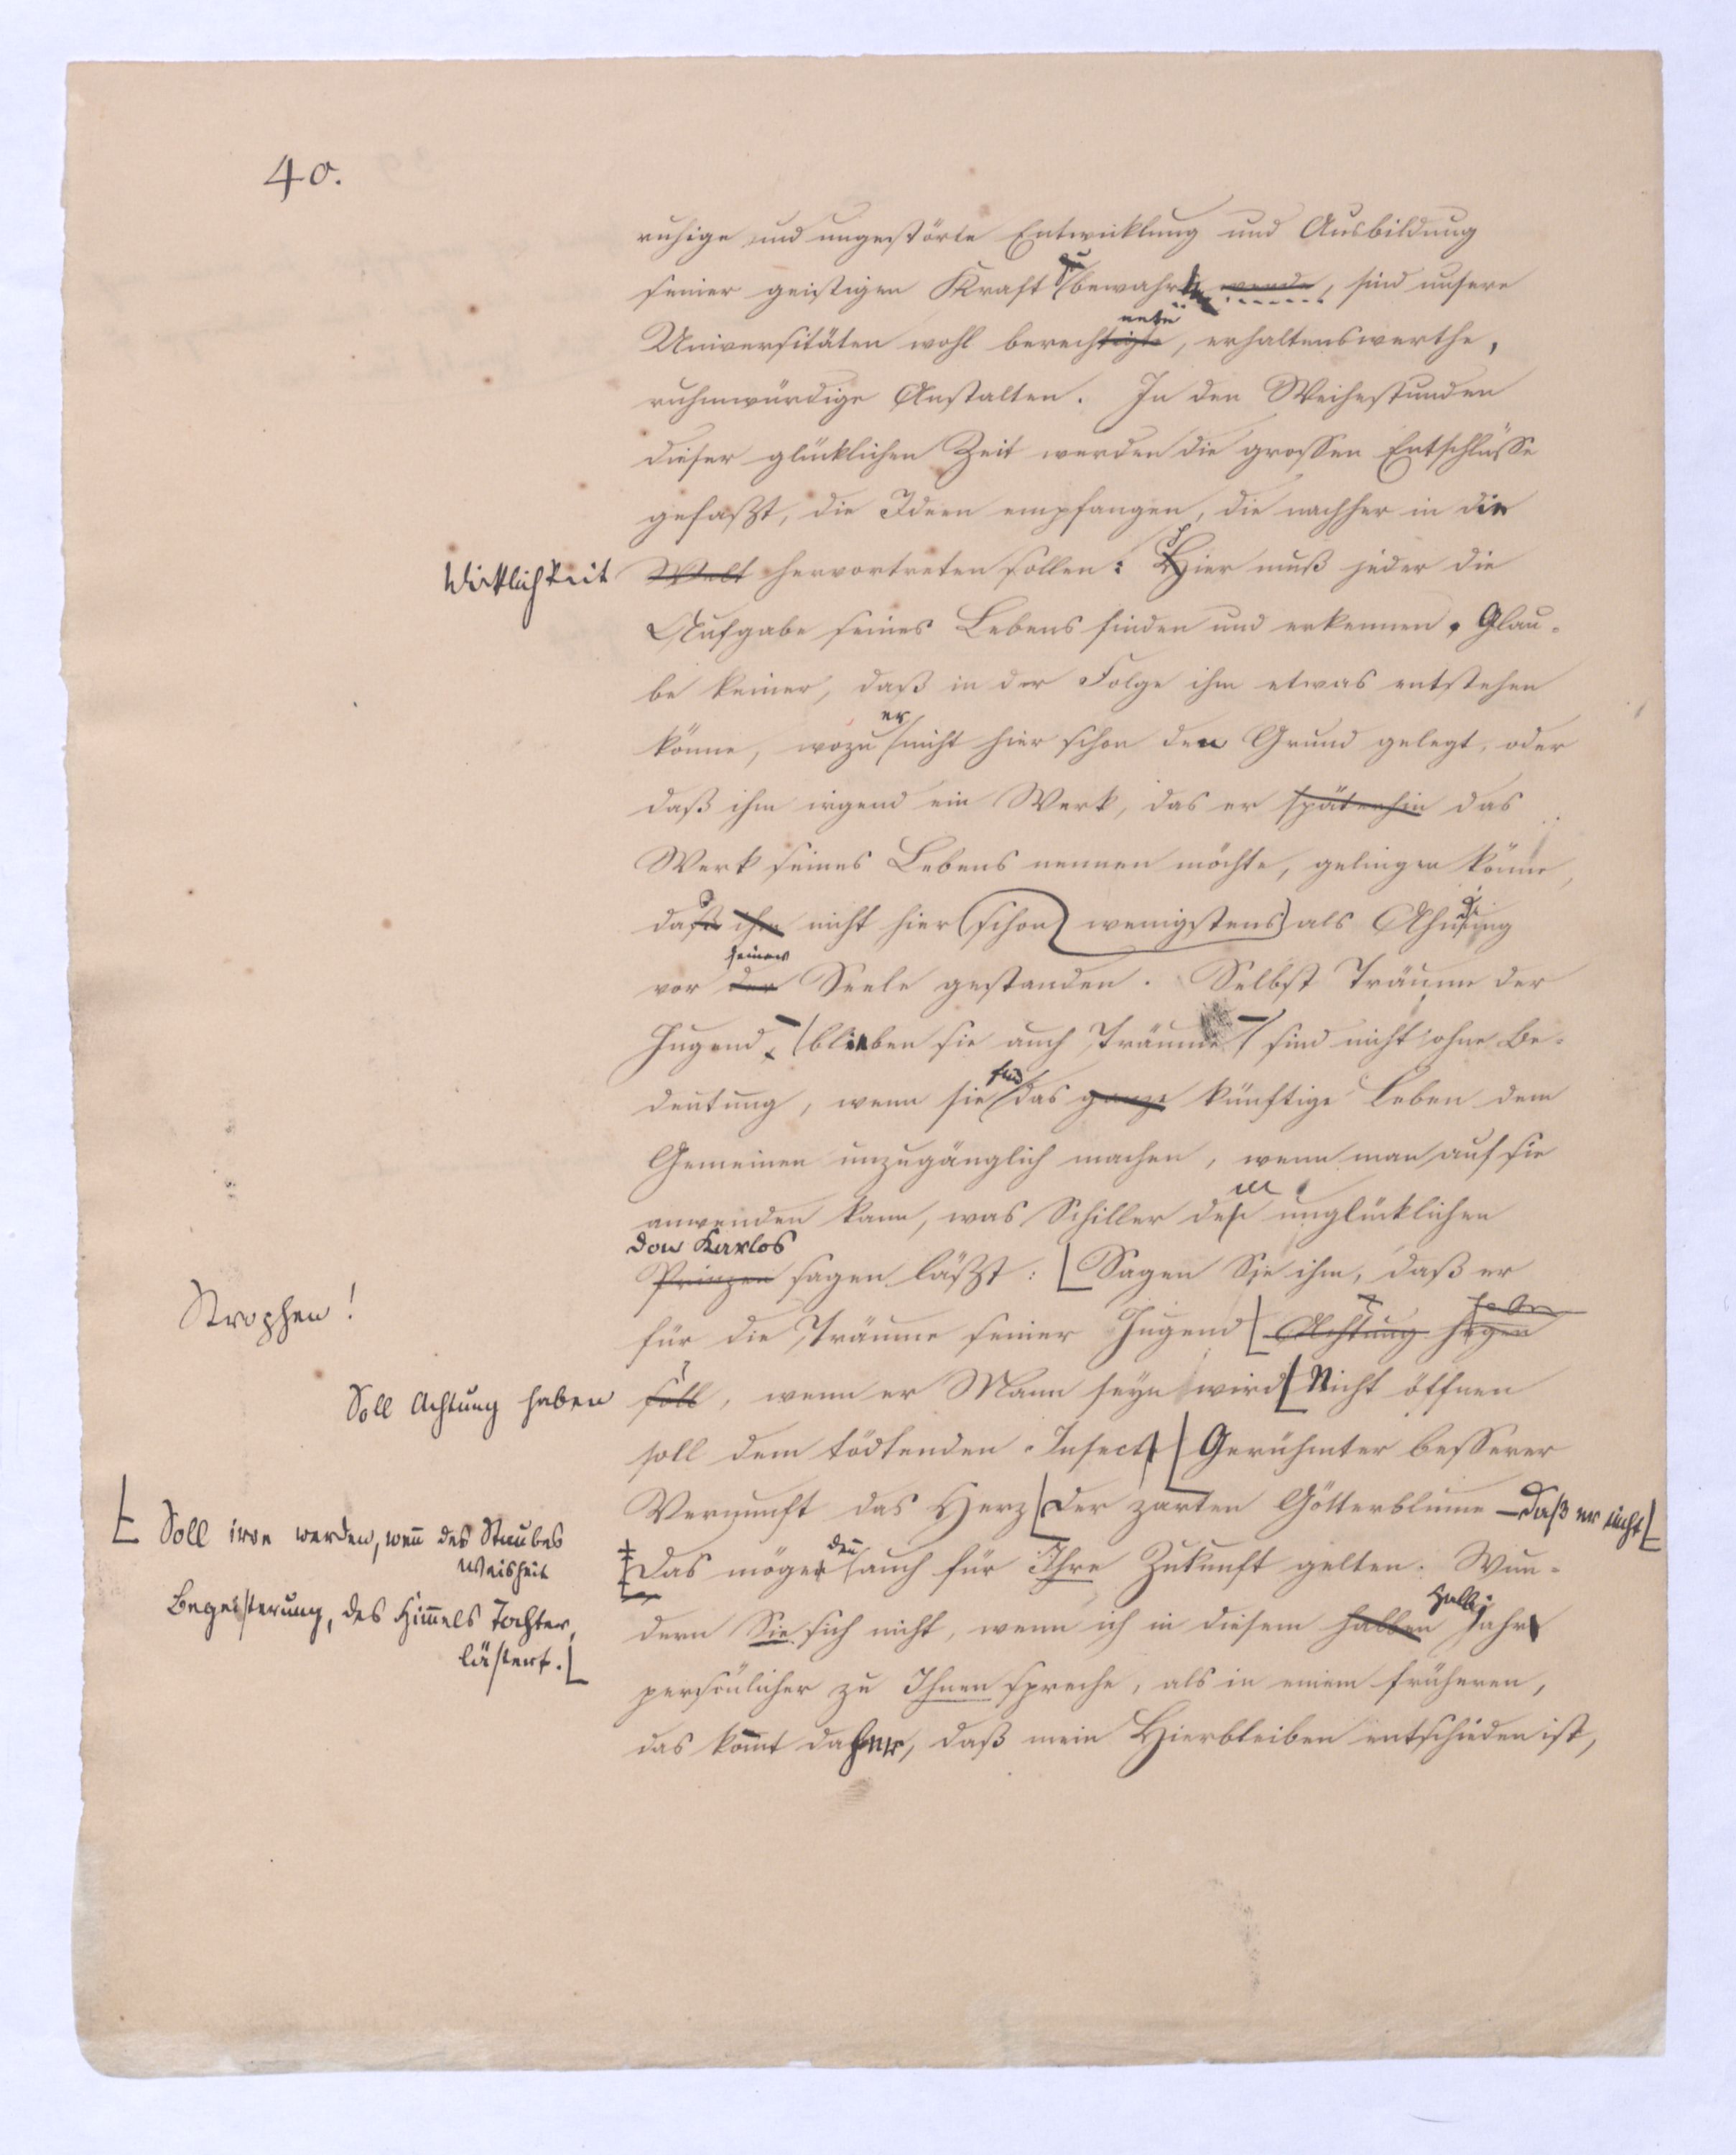 40.
ruhige und ungestörte Entwicklung und Ausbildung
seiner geistigen Kraft zu bewahren werde, sind unsere
Universitäten wohl berechtigte, erhaltenswerthe,
ruhmwürdige Anstalten. In den Weihestunden
dieser glücklichen Zeit werden die grossen Entschlüsse
gefaßt, die Ideen empfangen, die nachher in die
Wirklichkeit Welt hervortreten sollen: Hier muß jeder die
Aufgabe seines Lebens finden und erkennen. Glau-
be keiner, daß in der Folge ihm etwas entstehen
könne, wozu er nicht hier schon den Grund gelegt, oder
daß ihm irgend ein Werk, das er späterhin das
Werk seines Lebens nennen möchte, gelingen könne,
das ihm nicht hier schon wenigstens als Ahndung
vor seiner der Seele gestanden. Selbst Träume der
Jugend – blieben sie auch Träume – sind nicht ohne Be-
deutung, wenn sie für das ganze künftige Leben dem
Gemeinen unzugänglich machen, wenn man auf sie
anwenden kann, was Schiller dem unglücklichen
don Karlos
Prinzen sagen läßt: Sagen Sie ihm, daß er
Strophen!
für die Träume seiner Jugend Achtung hegen haben
Soll Achtung haben soll, wenn er Mann seyn wird Nicht öffnen
soll dem tödtenden Insect Gerühmter besserer
Vernunft das Herz der zarten Götterblume – daß er nicht
Soll irre werden, wenn des Staubes
Weisheit
Begeisterung, des Himmels Tochter,
lästert.
Das möge denn auch für Ihre Zukunft gelten. Wun-
dern Sie sich nicht, wenn ich in diesem halben Halbjahr
persönlicher zu Ihnen spreche, als in einem früheren,
das kommt daher, daß mein Hierbleiben entschieden ist,